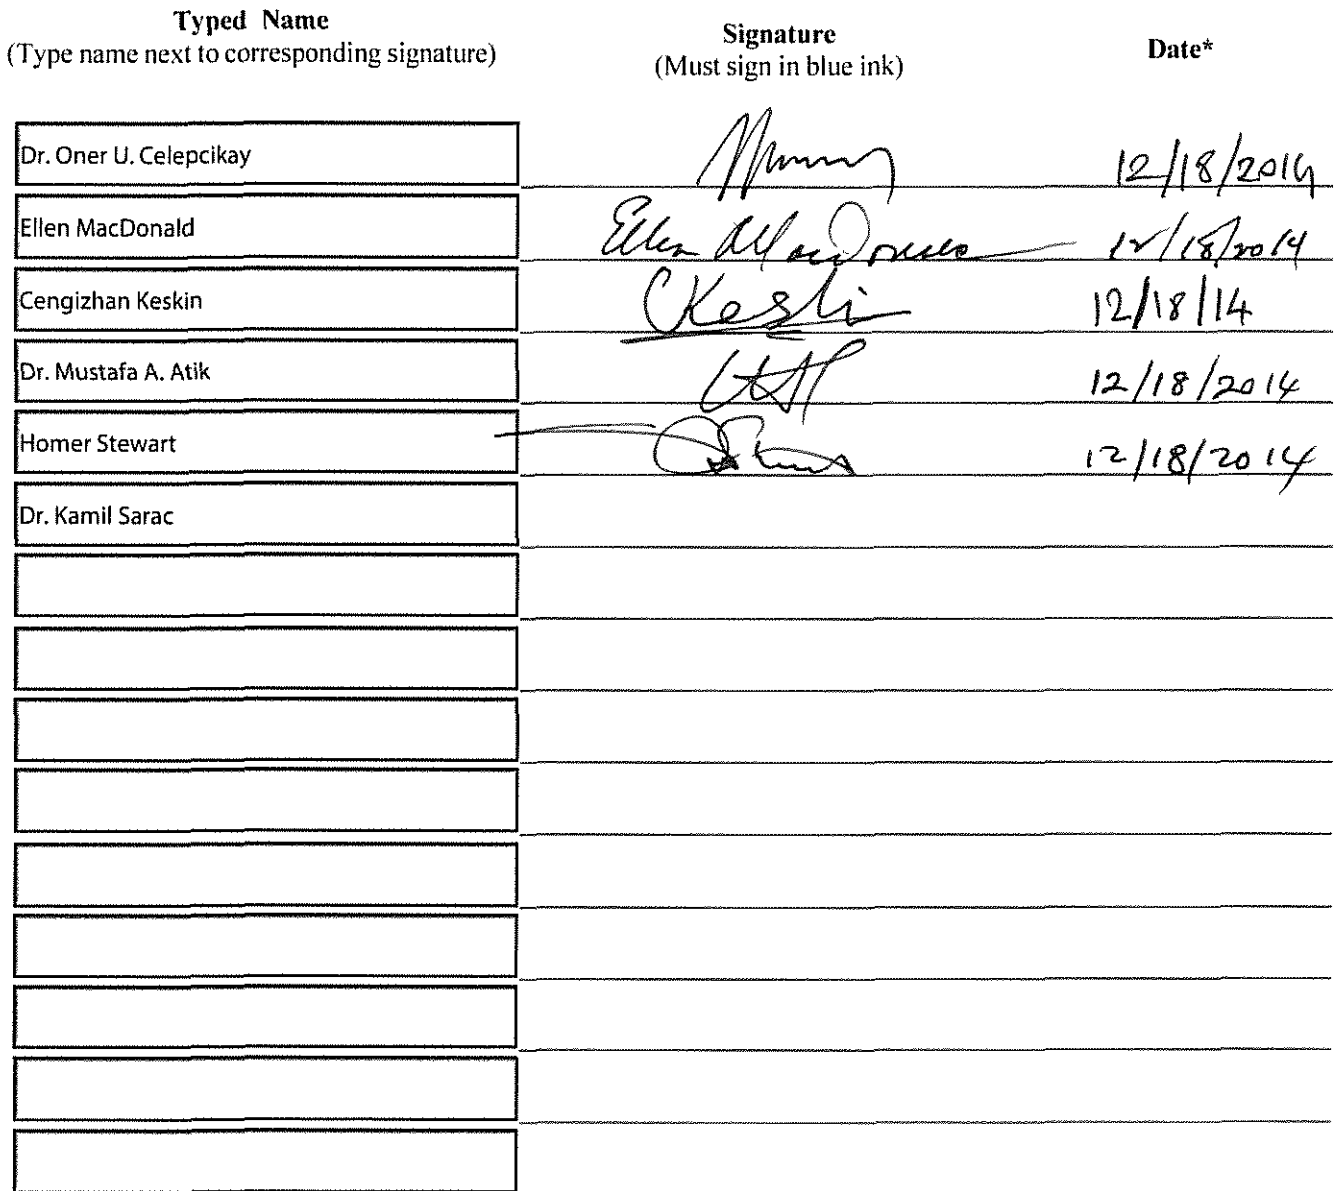 Typed Name
(Type name next to corresponding signature)
Signature
(Must sign in blue ink)
Date*
Dr. Oner U. Celepcikay 12/18/2014
Ellen MacDonald Ellen MacDonald 12/18/2014
Cengizhan Keskin CKeskin 12/18/14
Dr. Mustafa A. Atik 12/18/2014
Homer Stewart 12/18/2014
Dr. Kamil Sarac